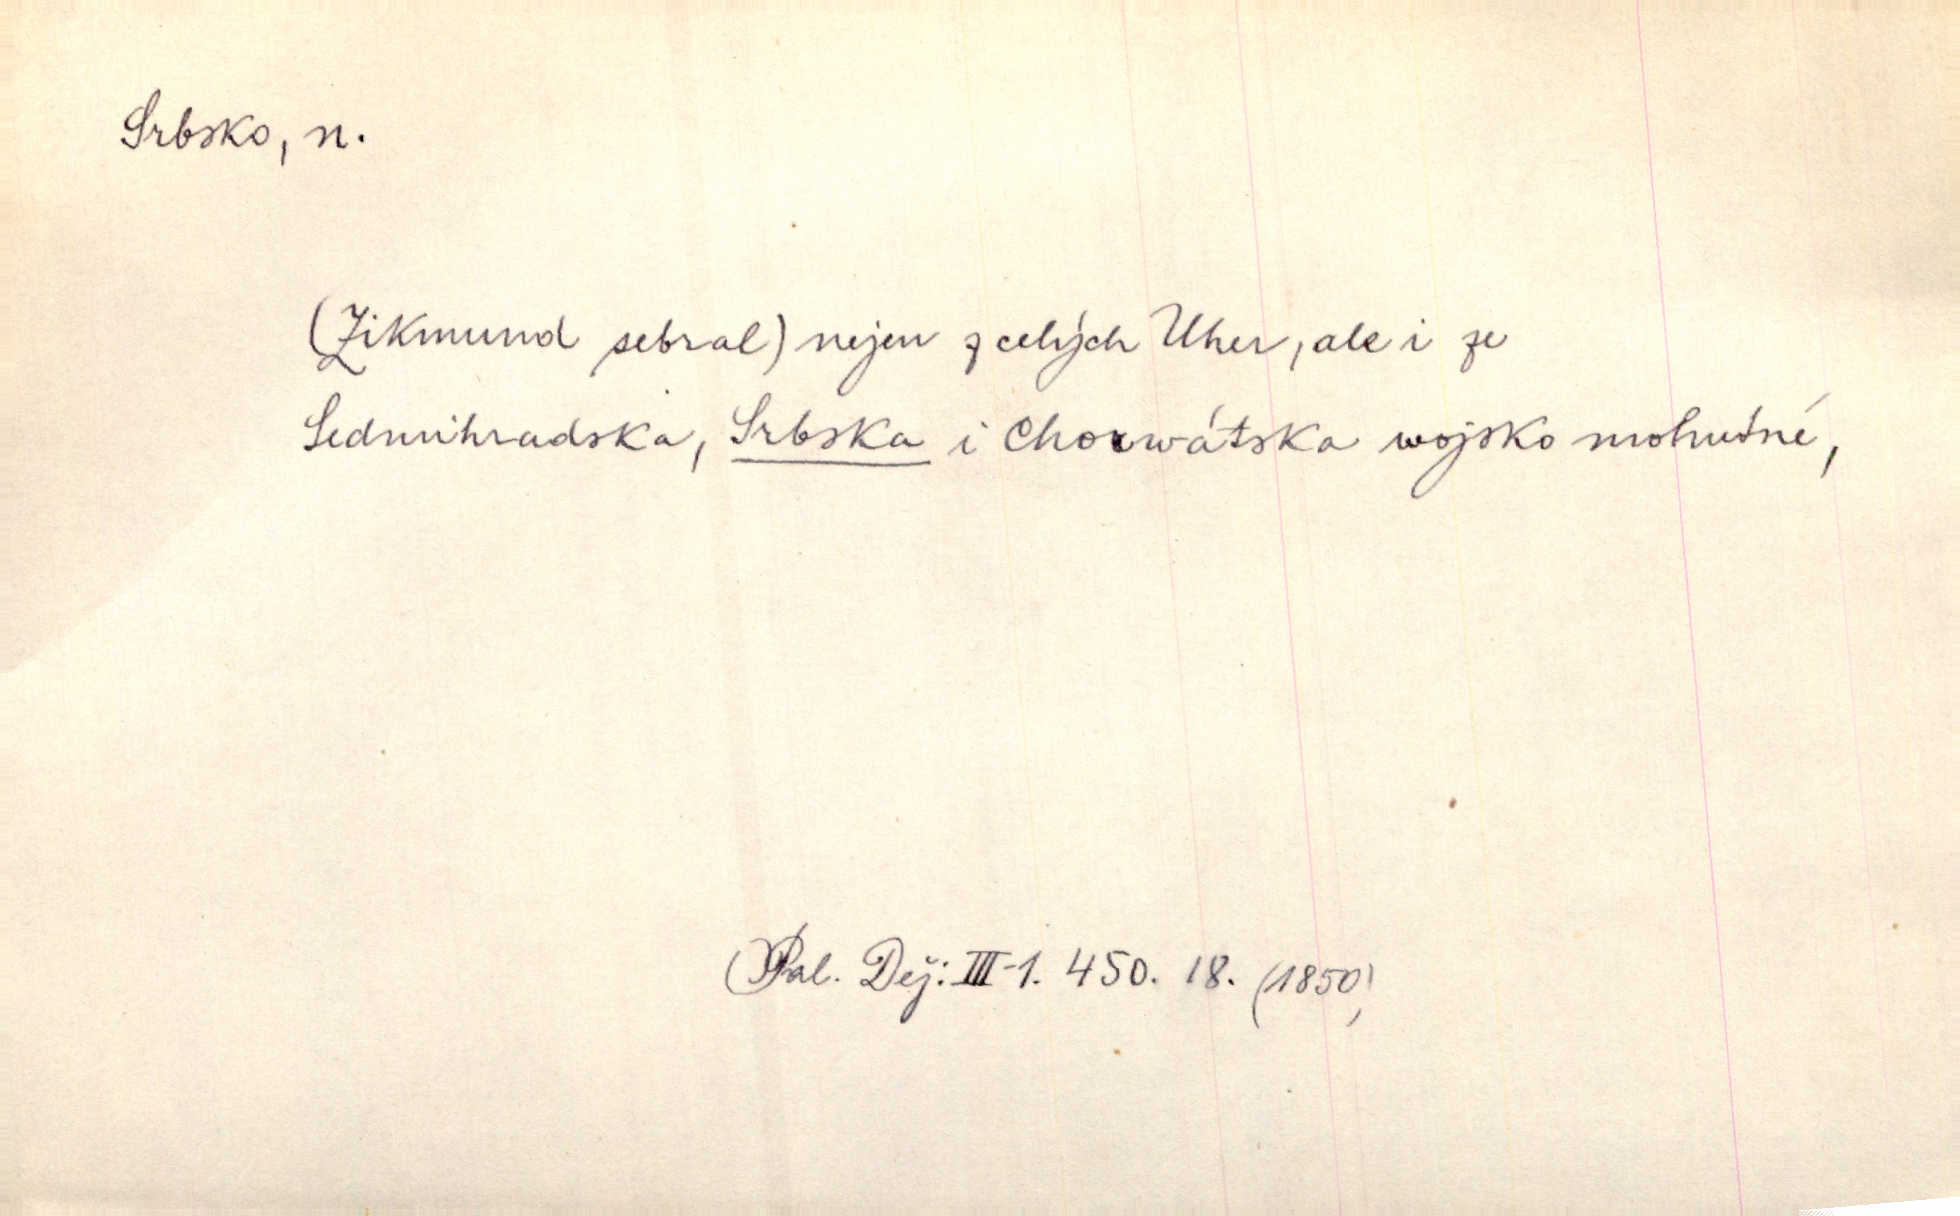 Srbsko, n.
(Zikmund sebral) nejen z celých Uher, ale i ze
Sedmihradska, Srbska i Chorwátska wojsko mohutné,
(Pal. Děj: III-1. 450. 18. (1850)